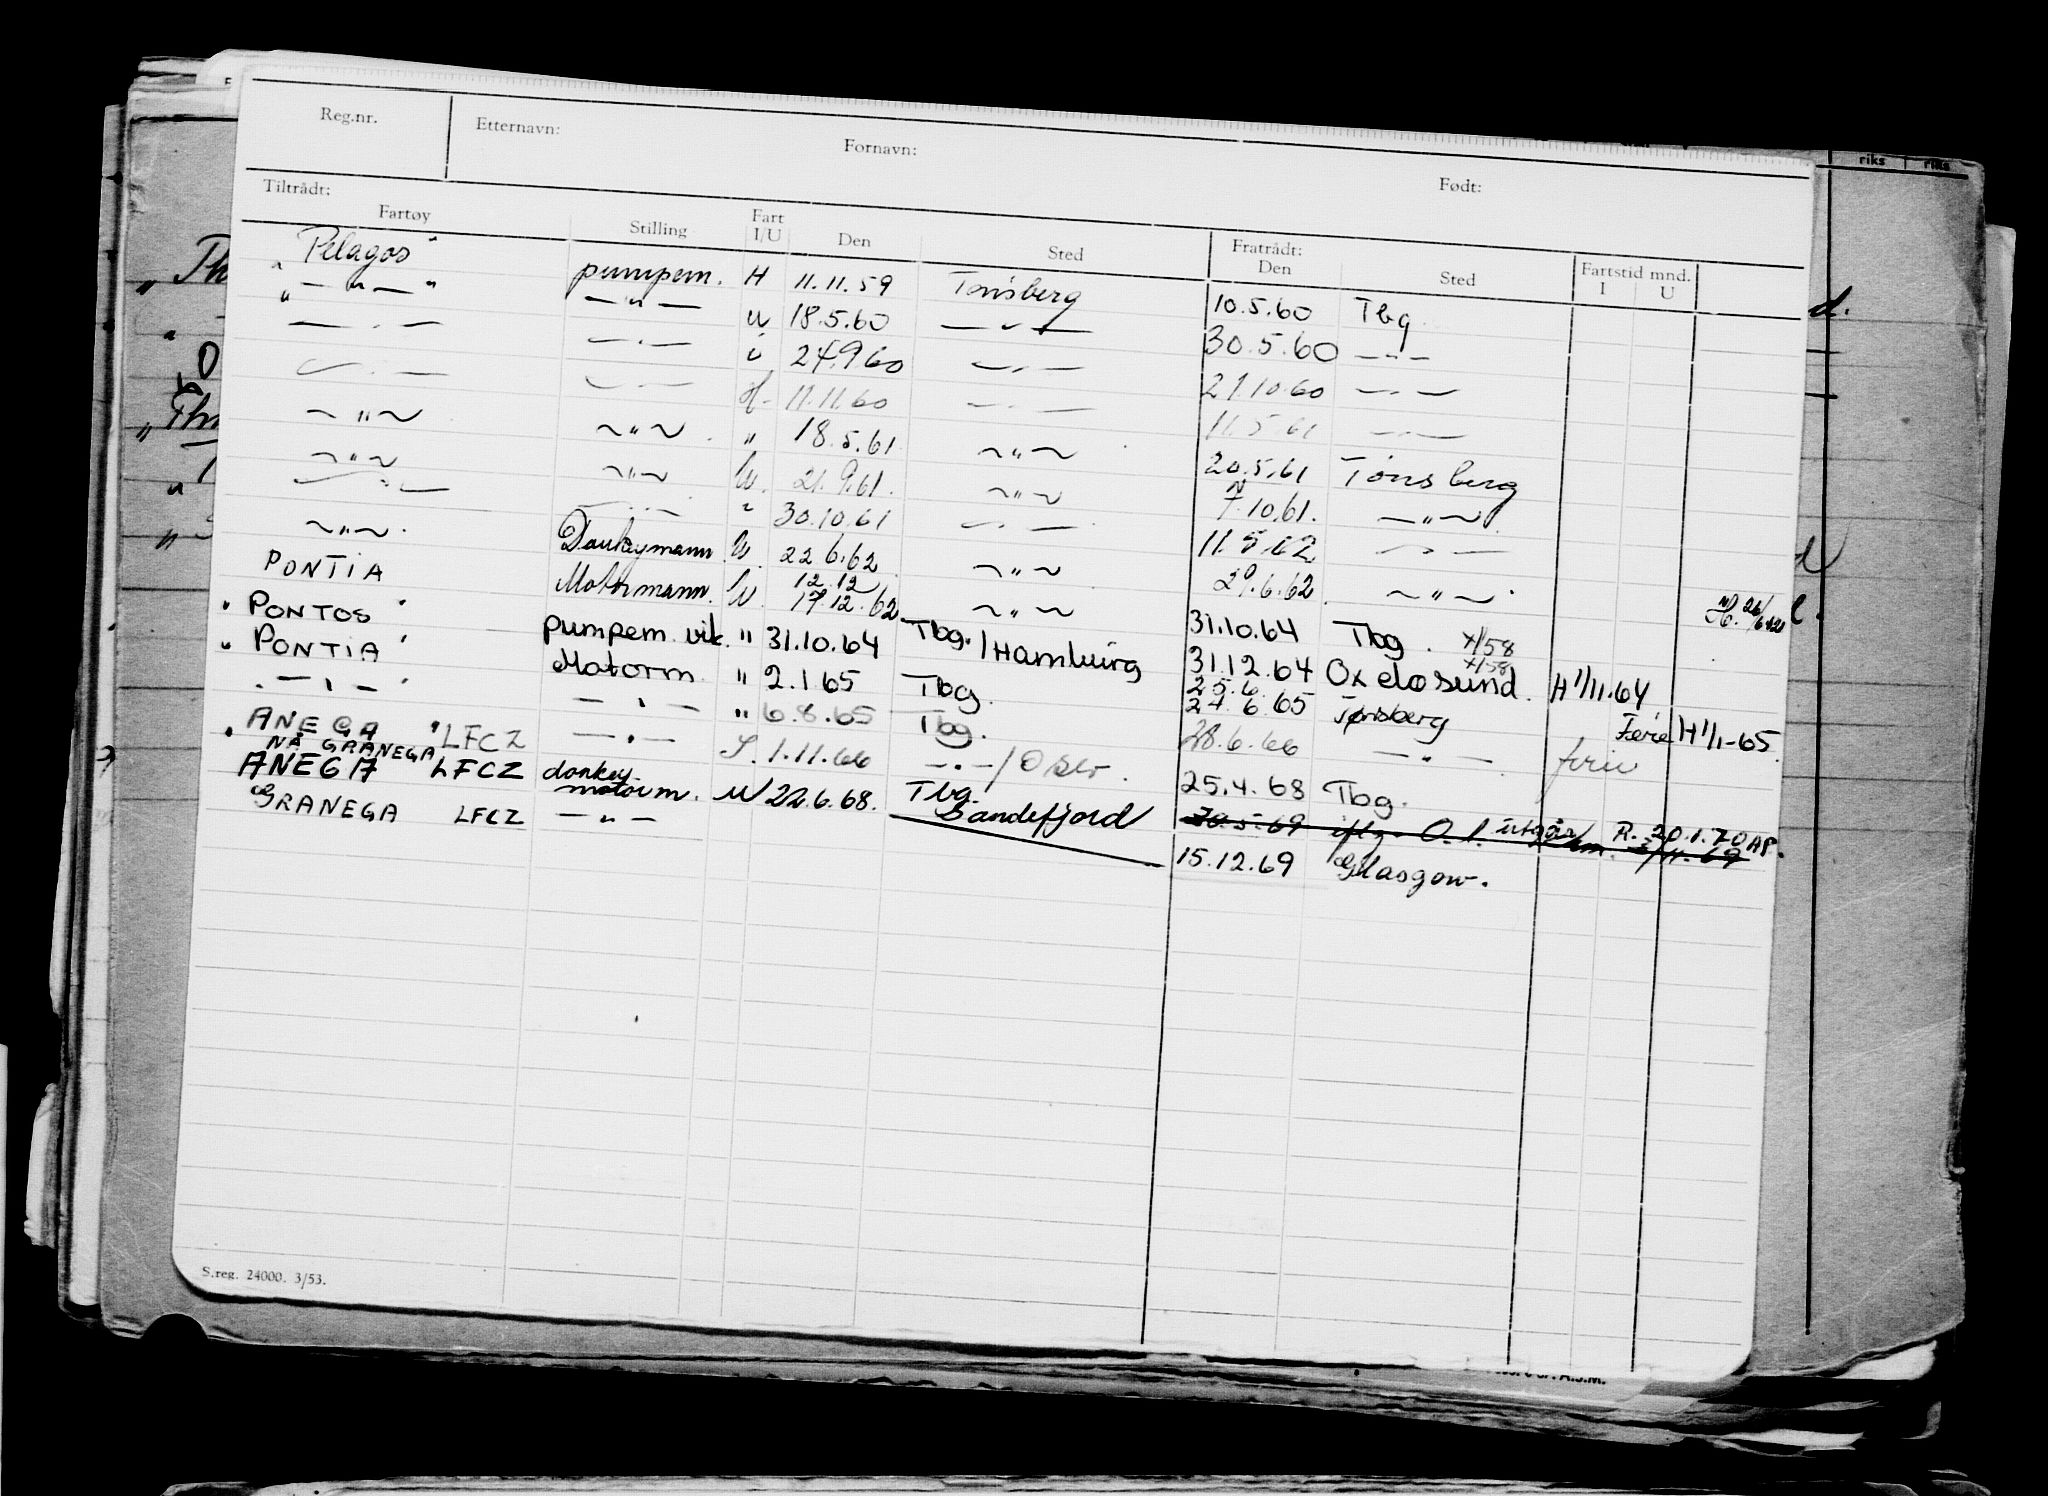 Reg.nr. Etternavn: Fornavn: Født:
Tiltrådt: Fratrådt:
Fartøy Stilling Fart I/U Den Sted Den Sted Fartstid mnd. I U
"Pelagos" pumpem. H 11.11.59 Tønsberg 10.5.60 Tbg.
" — " — " — " — u 18.5.60 — " — 30.5.60 — " —
— " — — " — u 24.9.60 — " — 21.10.60 — " —
— " — — " — H. 11.11.60 — " — 11.5.61 — " —
~ " ~ ~ " ~ " 18.5.61 ~ " ~ 20.5.61 Tønsberg
~ " ~ ~ " ~ U. 21.9.61. ~ " ~ 7.10.61. — " ~
— " — — " — " 30.10.61 — " — 11.5.62 — " —
~ " ~. Donkeymann U. 22.6.62 ~ " ~ 29.6.62. ~ " ~
PONTIA Motormann. U. 12.12 17.12.62 ~ " ~ 31.10.64 Tbg. X/58
" PONTOS " pumpem. vik. " 31.10.64 Tbg./Hamburg 31.12.64 Oxelosund. X/58 H 1/11.64
" PONTIA " Motorm. " 2.1.65 Tbg. 25.6. 24.6.65 Tønsberg Ferie H 1/1-65
. — " — " — " — " 6.8.65 Tbg. 28.6.66 — " — ferie
" ANEGA " LFCZ — " — S. 1.11.66 — " — / Oslo. 25.4.68 Tbg.
NÅ GRANEGA
ANEGA LFCZ donkey motorm. U 22.6.68. Tbg. 30.5.69 iflg. O.l. utgår R. 20.1.70 AP.
GRANEGA LFCZ — " — Sandefjord 15.12.69 Glasgow.
S.reg. 24000. 3/53.
riks riks